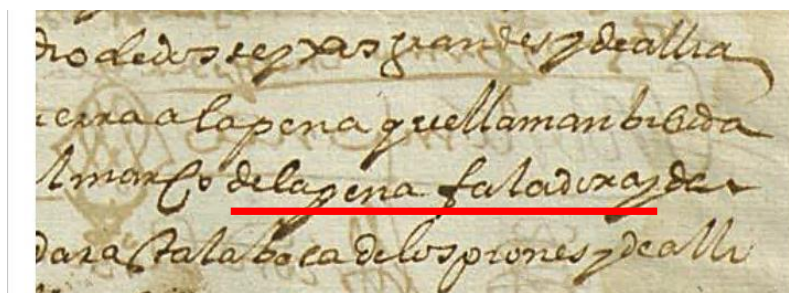 dro de dos seyxas grandes y de alli a
cerra a la pena que llaman
l marco de la pena faladora y de
dar asta la boca de los piones y de alli